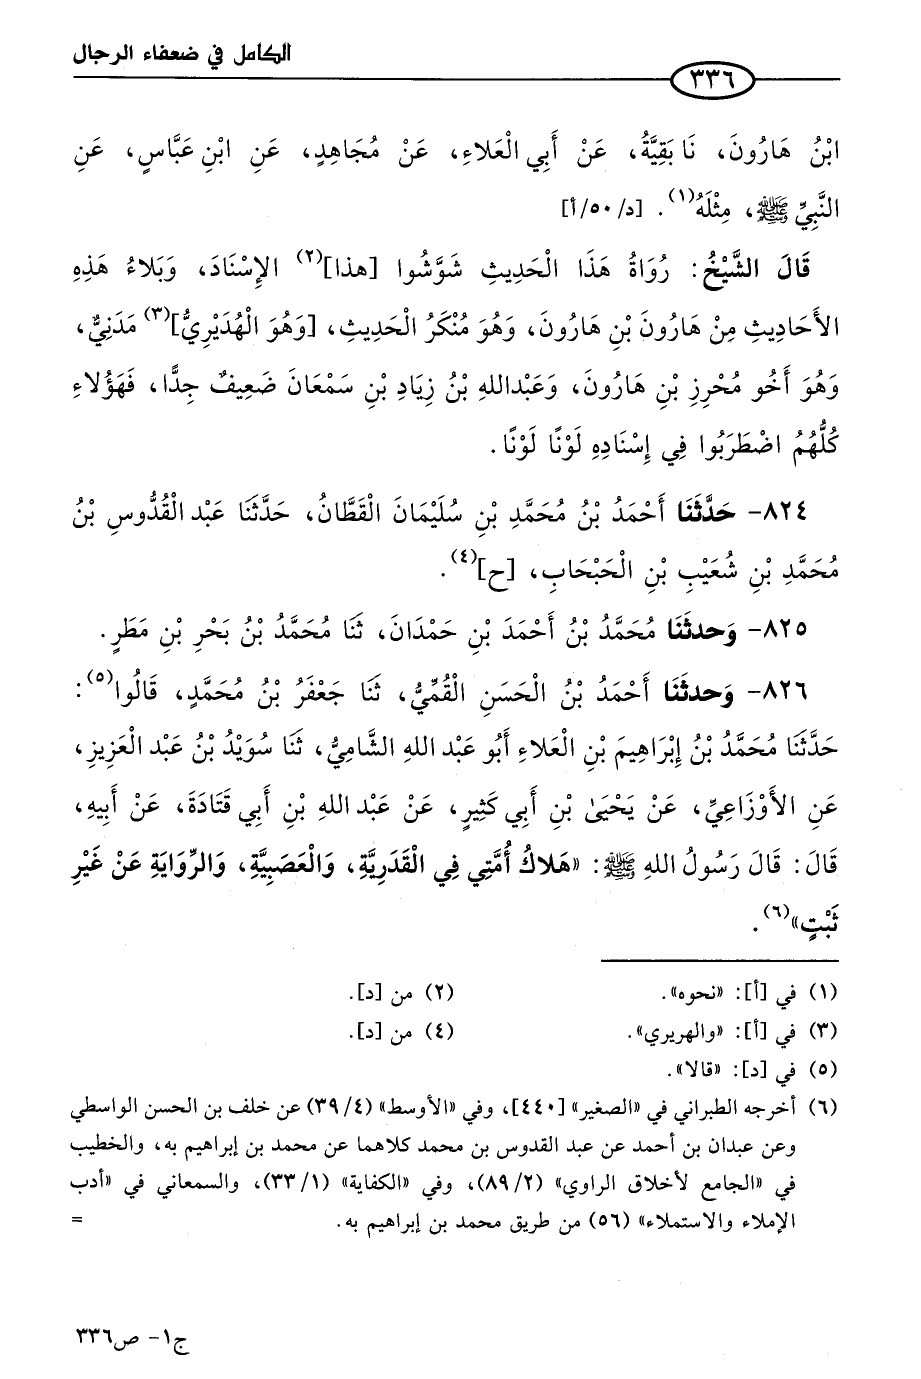 الكامل في ضعفاء الرجال
٣٣٦
ابْنُ هَارُونَ، نَا بَقِيَّةُ، عَنْ أَبِي الْعَلاءِ، عَنْ مُجَاهِدٍ، عَنِ ابْنِ عَبَّاسٍ، عَنِ
النَّبِيِّ ﷺ، مِثْلَهُ(١). [د/٥٠/أ]
قَالَ الشَّيْخُ: رُوَاةُ هَذَا الْحَدِيثِ شَوَّشُوا [هذا](٢) الإِسْنَادَ، وَبَلاءُ هَذِهِ
الأَحَادِيثِ مِنْ هَارُونَ بْنِ هَارُونَ، وَهُوَ مُنْكَرُ الْحَدِيثِ، [وَهُوَ الْهُدَيْرِيُّ](٣) مَدَنِيٌّ،
وَهُوَ أَخُو مُحْرِزِ بْنِ هَارُونَ، وَعَبْدالله بْنُ زِيَادِ بْنِ سَمْعَانَ ضَعِيفٌ جِدًّا، فَهَؤُلاءِ
كُلُّهُمُ اضْطَرَبُوا فِي إِسْنَادِهِ لَوْنًا لَوْنًا.
٨٢٤- حَدَّثَنَا أَحْمَدُ بْنُ مُحَمَّدِ بْنِ سُلَيْمَانَ الْقَطَّانُ، حَدَّثَنَا عَبْد الْقُدُّوسِ بْنُ
مُحَمَّدِ بْنِ شُعَيْبِ بْنِ الْحَبْحَابِ، [ح](٤).
٨٢٥- وَحدثَنَا مُحَمَّدُ بْنُ أَحْمَدَ بْنِ حَمْدَانَ، ثَنَا مُحَمَّدُ بْنُ بَحْرِ بْنِ مَطَرٍ.
٨٢٦- وَحدثَنَا أَحْمَدُ بْنُ الْحَسَنِ الْقُمِّيُّ، ثَنَا جَعْفَرُ بْنُ مُحَمَّدٍ، قَالُوا(٥):
حَدَّثَنَا مُحَمَّدُ بْنُ إِبْرَاهِيمَ بْنِ الْعَلاءِ أَبُو عَبْد اللهِ الشَّامِيُّ، ثَنَا سُوَيْدُ بْنُ عَبْد الْعَزِيزِ،
عَنِ الأَوْزَاعِيِّ، عَنْ يَحْيَىٰ بْنِ أَبِي كَثِيرٍ، عَنْ عَبْد اللهِ بْنِ أَبِي قَتَادَةَ، عَنْ أَبِيهِ،
قَالَ: قَالَ رَسُولُ اللهِ ﷺ: «هَلاكُ أُمَّتِي فِي الْقَدَرِيَّةِ، وَالْعَصَبِيَّةِ، وَالرِّوَايَةِ عَنْ غَيْرِ
ثَبْتٍ»(٦).
(١) في [أ]: «نحوه». (٢) من [د].
(٣) في [أ]: «والهريري». (٤) من [د].
(٥) في [د]: «قالا».
(٦) أخرجه الطبراني في «الصغير» [٤٤٠]، وفي «الأوسط» (٣٩/٤) عن خلف بن الحسن الواسطي
وعن عبدان بن أحمد عن عبد القدوس بن محمد كلاهما عن محمد بن إبراهيم به، والخطيب
في «الجامع لأخلاق الراوي» (٨٩/٢)، وفي «الكفاية» (٣٣/١)، والسمعاني في «أدب
الإملاء والاستملاء» (٥٦) من طريق محمد بن إبراهيم به. =
ج١- ص٣٣٦